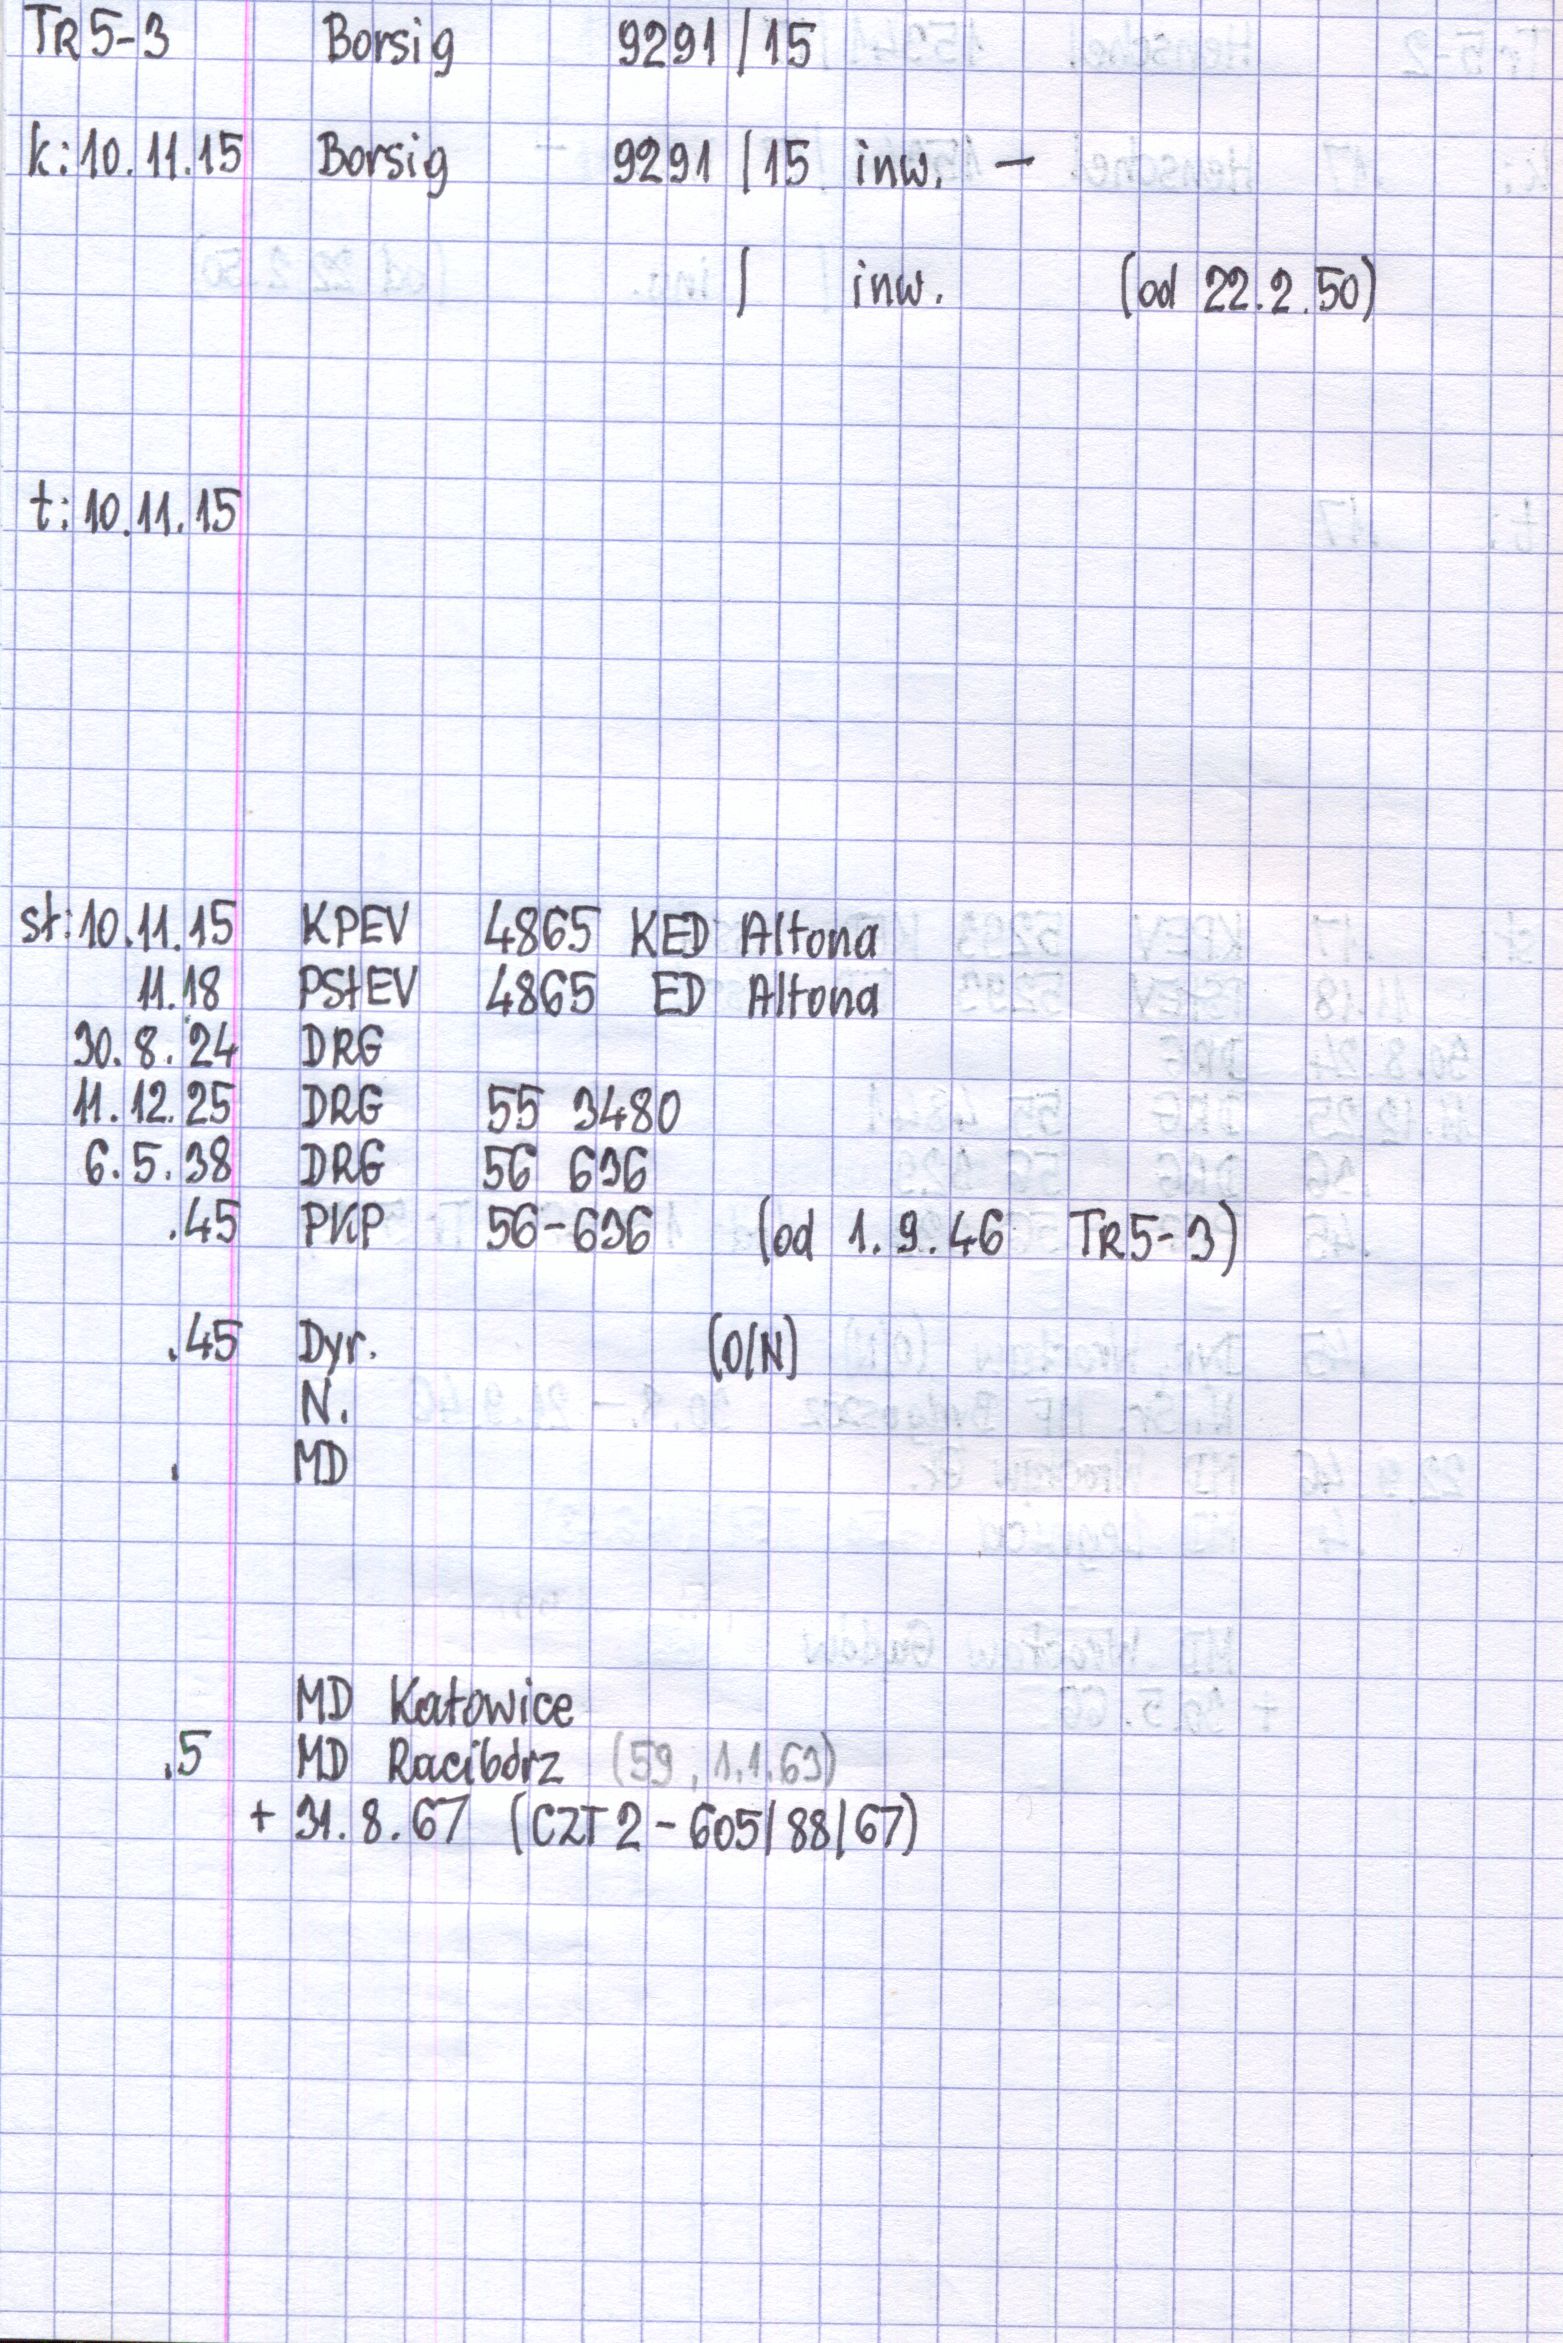 TR5-3 Borsig 9291/15
k: 10.11.15 Borsig 9291/15 inw. -
/ inw. (od 22.2.50)
t: 10.11.15
st: 10.11.15 KPEV 4865 KED Altona
11.18 PStEV 4865 ED Altona
30.8.24 DRG
11.12.25 DRG 55 3480
6.5.38 DRG 56 636
.45 PKP 56-636 (od 1.9.46 TR5-3)
.45 Dyr. (O/N)
N.
. MD
MD Katowice
.5 MD Racibórz (59, 1.1.63)
+ 31.8.67 (CZT2-605/88/67)